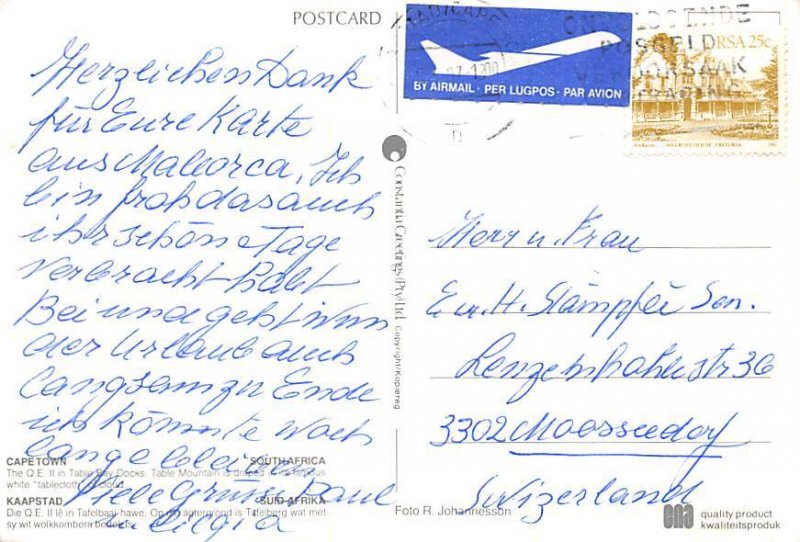 POSTCARD
Herzlichen Dank
für Eure Karte
aus Mallorca, Ich
bin froh das auch
ihr schöne Tage
verbracht habt
Bei uns geht nun
der Urlaub auch
langsam zu Ende
ich könnte noch
lange bleiben
Viele Grüsse Paul
BY AIRMAIL · PER LUGPOS · PAR AVION
POSGELD
RSA 25c
Constantia Greetings (Pty) Ltd.
Copyright/Kopiereg
Herr u. Frau
E. u. H. Stämpfli Sen.
36
3302 Moosseedorf
Switzerland
CAPE TOWN SOUTH AFRICA
The Q.E. II in Table Bay Docks. Table Mountain is draped in its famous
white "tablecloth" of cloud.
KAAPSTAD SUID-AFRIKA
Die Q.E. II lê in Tafelbaai-hawe. Op die agtergrond is Tafelberg wat met
sy wit wolkkombers bedek is.
Foto R. Johannesson
cna quality product
kwaliteitsproduk